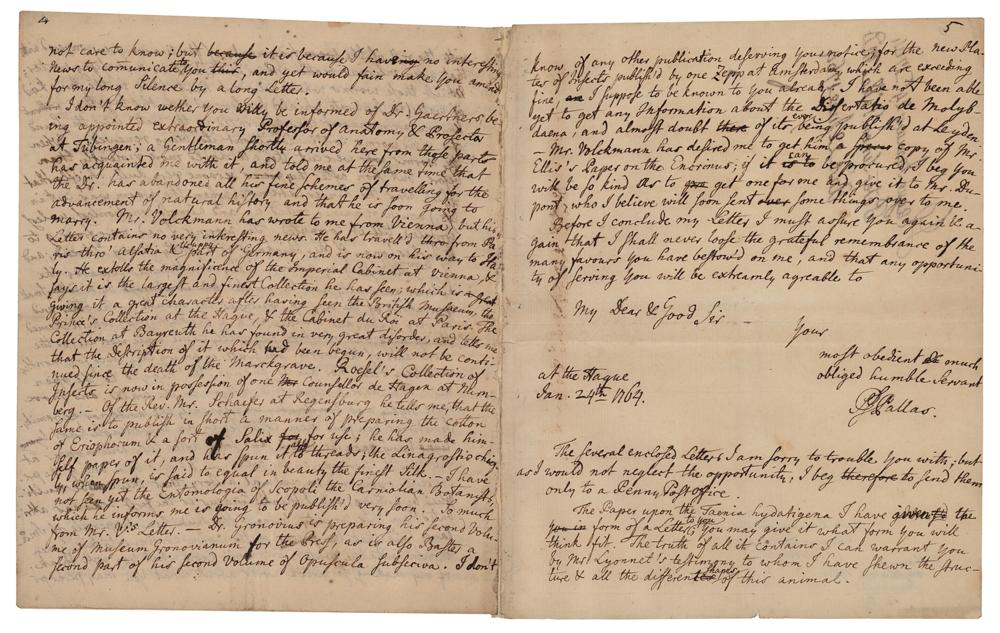 4
not care to know; but because it is because I having no interesting
News to comunicate to you this, and yet would fain make you amend
for my long Silence by a long Letter.
I don't know wether you will be informed of Dr. Gaertners be
ing appointed extraordinary Professor of Anatomy & Prosector
at Tubingen; a Gentleman shortly arrived here from those parts
has acquainted me with it, and told me at the same time that
the Dr. has abandoned all his fine schemes of travelling for the
advancement of natural history and that he is soon going to
marry. Mr. Volckmann has wrote to me from Vienna, but his
Letter contains no very interesting news. He has travell'd thro from Pa
ris thro' alsatia & the upper part of Germany, and is now on his way to Ita
ly. He extolls the magnificence of the Imperial Cabinet at Vienna, &
says it is the largest and finest Collection he has seen; which is a great
giving it a great character after having seen the British Musseum, the
Prince's Collection at the Hague, & the Cabinet du Roi at Paris. The
Collection at Bayreuth he has found in very great disorder, and tells me
that the Description of it which had been begun, will not be conti-
nued since the death of the Marckgrave. Roesel's Collection of
Insects is now in possession of one the Counsellor de Hagen at Nurn-
berg. – Of the Rev. Mr. Schaefer at Regensburg he tells me, that the
same is to publish in short a manner of preparing the cotton
of Eriophorum & a sort of Salix for use; he has made him-
self paper of it, and has spun it to threads; the Linagrostis chief
ly, when spun, is said to equal in beauty the finest Silk. – I have
not seen yet the Entomologia of Scopoli the Carniolian Botanist,
which he informs me is going to be publish'd very soon. So much
from Mr. V's Letter. – Dr. Gronovius is preparing his second Volu-
me of Museum Gronovianum for the Press, as is also Baster a
second part of his second volume of Opuscula subseciva. I don't
5
know, of any other publication deserving your notice; for the new Pla-
tes of Insects publish'd by one Sepp at Amsterdam, which are exceeding
fine, I suppose to be known to You already. I have not been able
yet to get any Information about the Dissertatio de Molyb-
daena, and almost doubt of its ever being publish'd at Leyden.
– Mr. Volckmann has desired me to get him a copy of Mr.
Ellis's Paper on the Encrinus; if it is can to be procured, I beg you
will be so kind as to get one for me and give it to Mr. Du-
pont, who I believe will soon sent over some things over to me.
Before I conclude my Letter I must assure you again & a-
gain, that I shall never loose the grateful remembrance of the
many favours you have bestowd on me, and that any opportuni-
ty of serving You will be extreamly agreable to
My Dear & Good Sir
Your
most obedient & much
obliged humble Servant
PSPallas.
at the Hague
Jan. 24th 1764.
The several enclosed Letters I am sorry to trouble You with; but
as I would not neglect the opportunity, I beg therefore to send them
only to a Penny Post office.
The Papers upon the Taenia hydatigena I have given'd the
you in form of a Letter to you; You may give it what form you will
think fit. The truth of all it contains I can warrant You
by Mr Lyonnet's testimony to whom I have shewn the struc-
ture & all the different shapes of this animal.